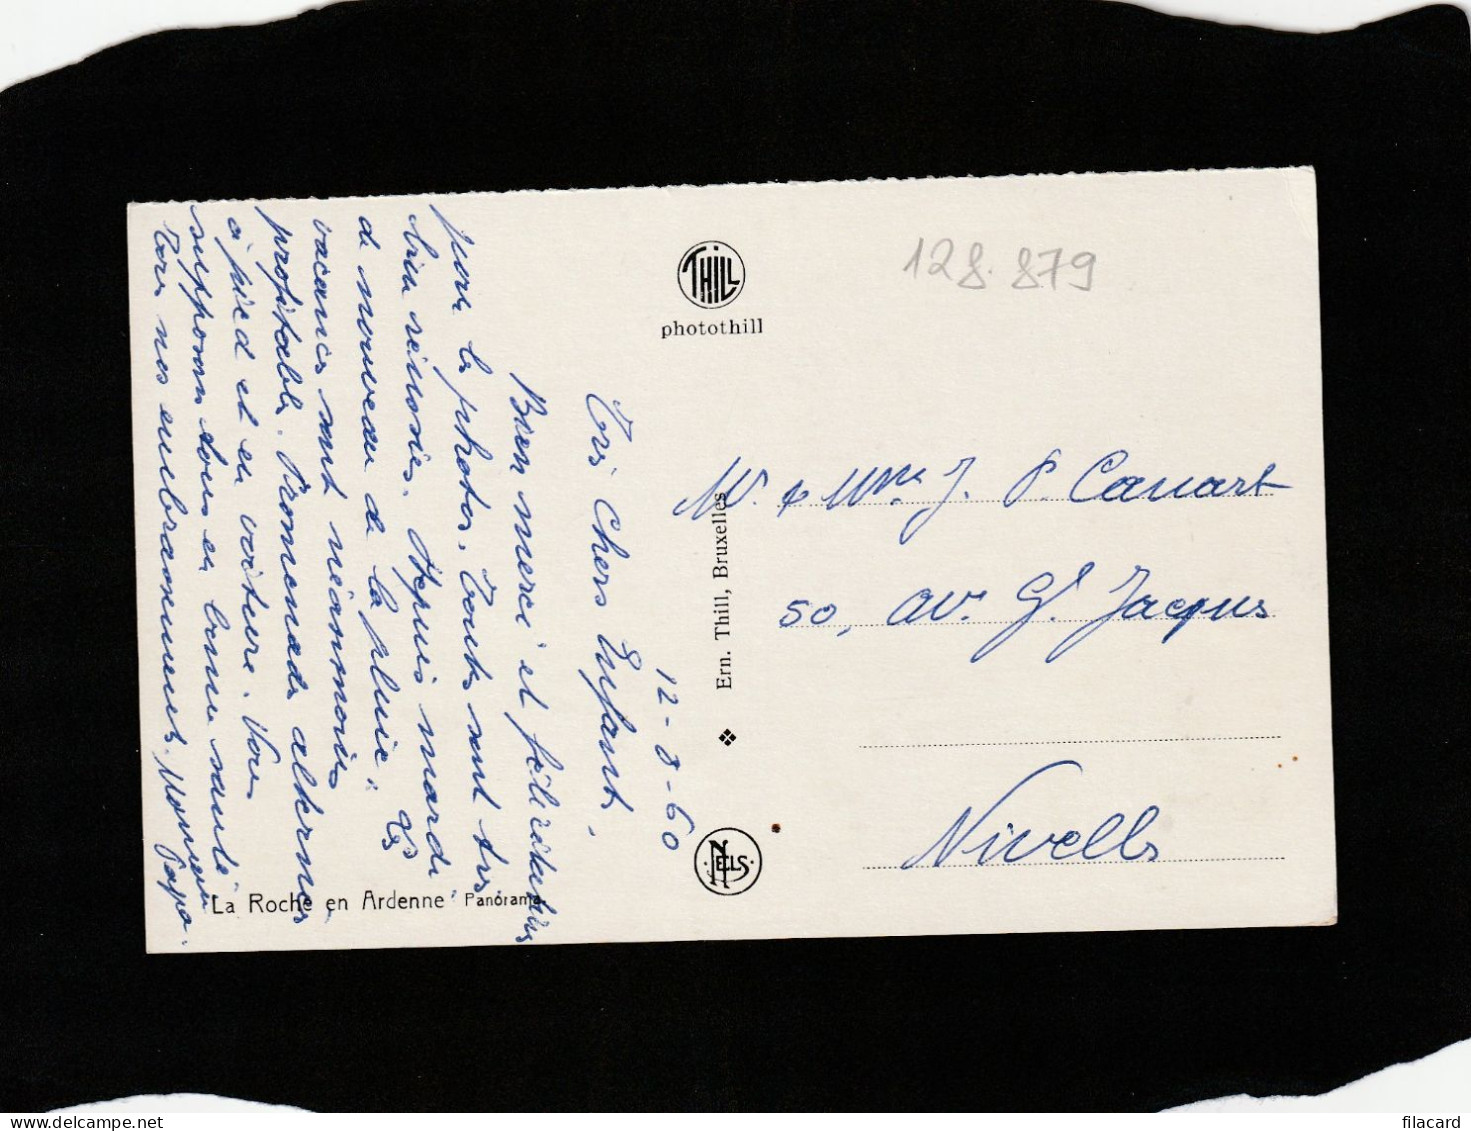 12-8-60
Très Chers Enfants,
Bien merci et félicitations
pour les photos. Toutes sont très
bien réussies. Depuis mardi
de nouveau de la pluie. Les
vacances sont néanmoins
profitables. Promenades alternées
à pied et en voiture. Vous
supposons tous en bonne santé
nos embrassements. Maman
Papa.
THILL
photothill
128.879
M. & Mme J. P. Canart
50, av. G. Jacques
Nivelles
Ern. Thill, Bruxelles
NELS
La Roche en Ardenne Panorama
filacard